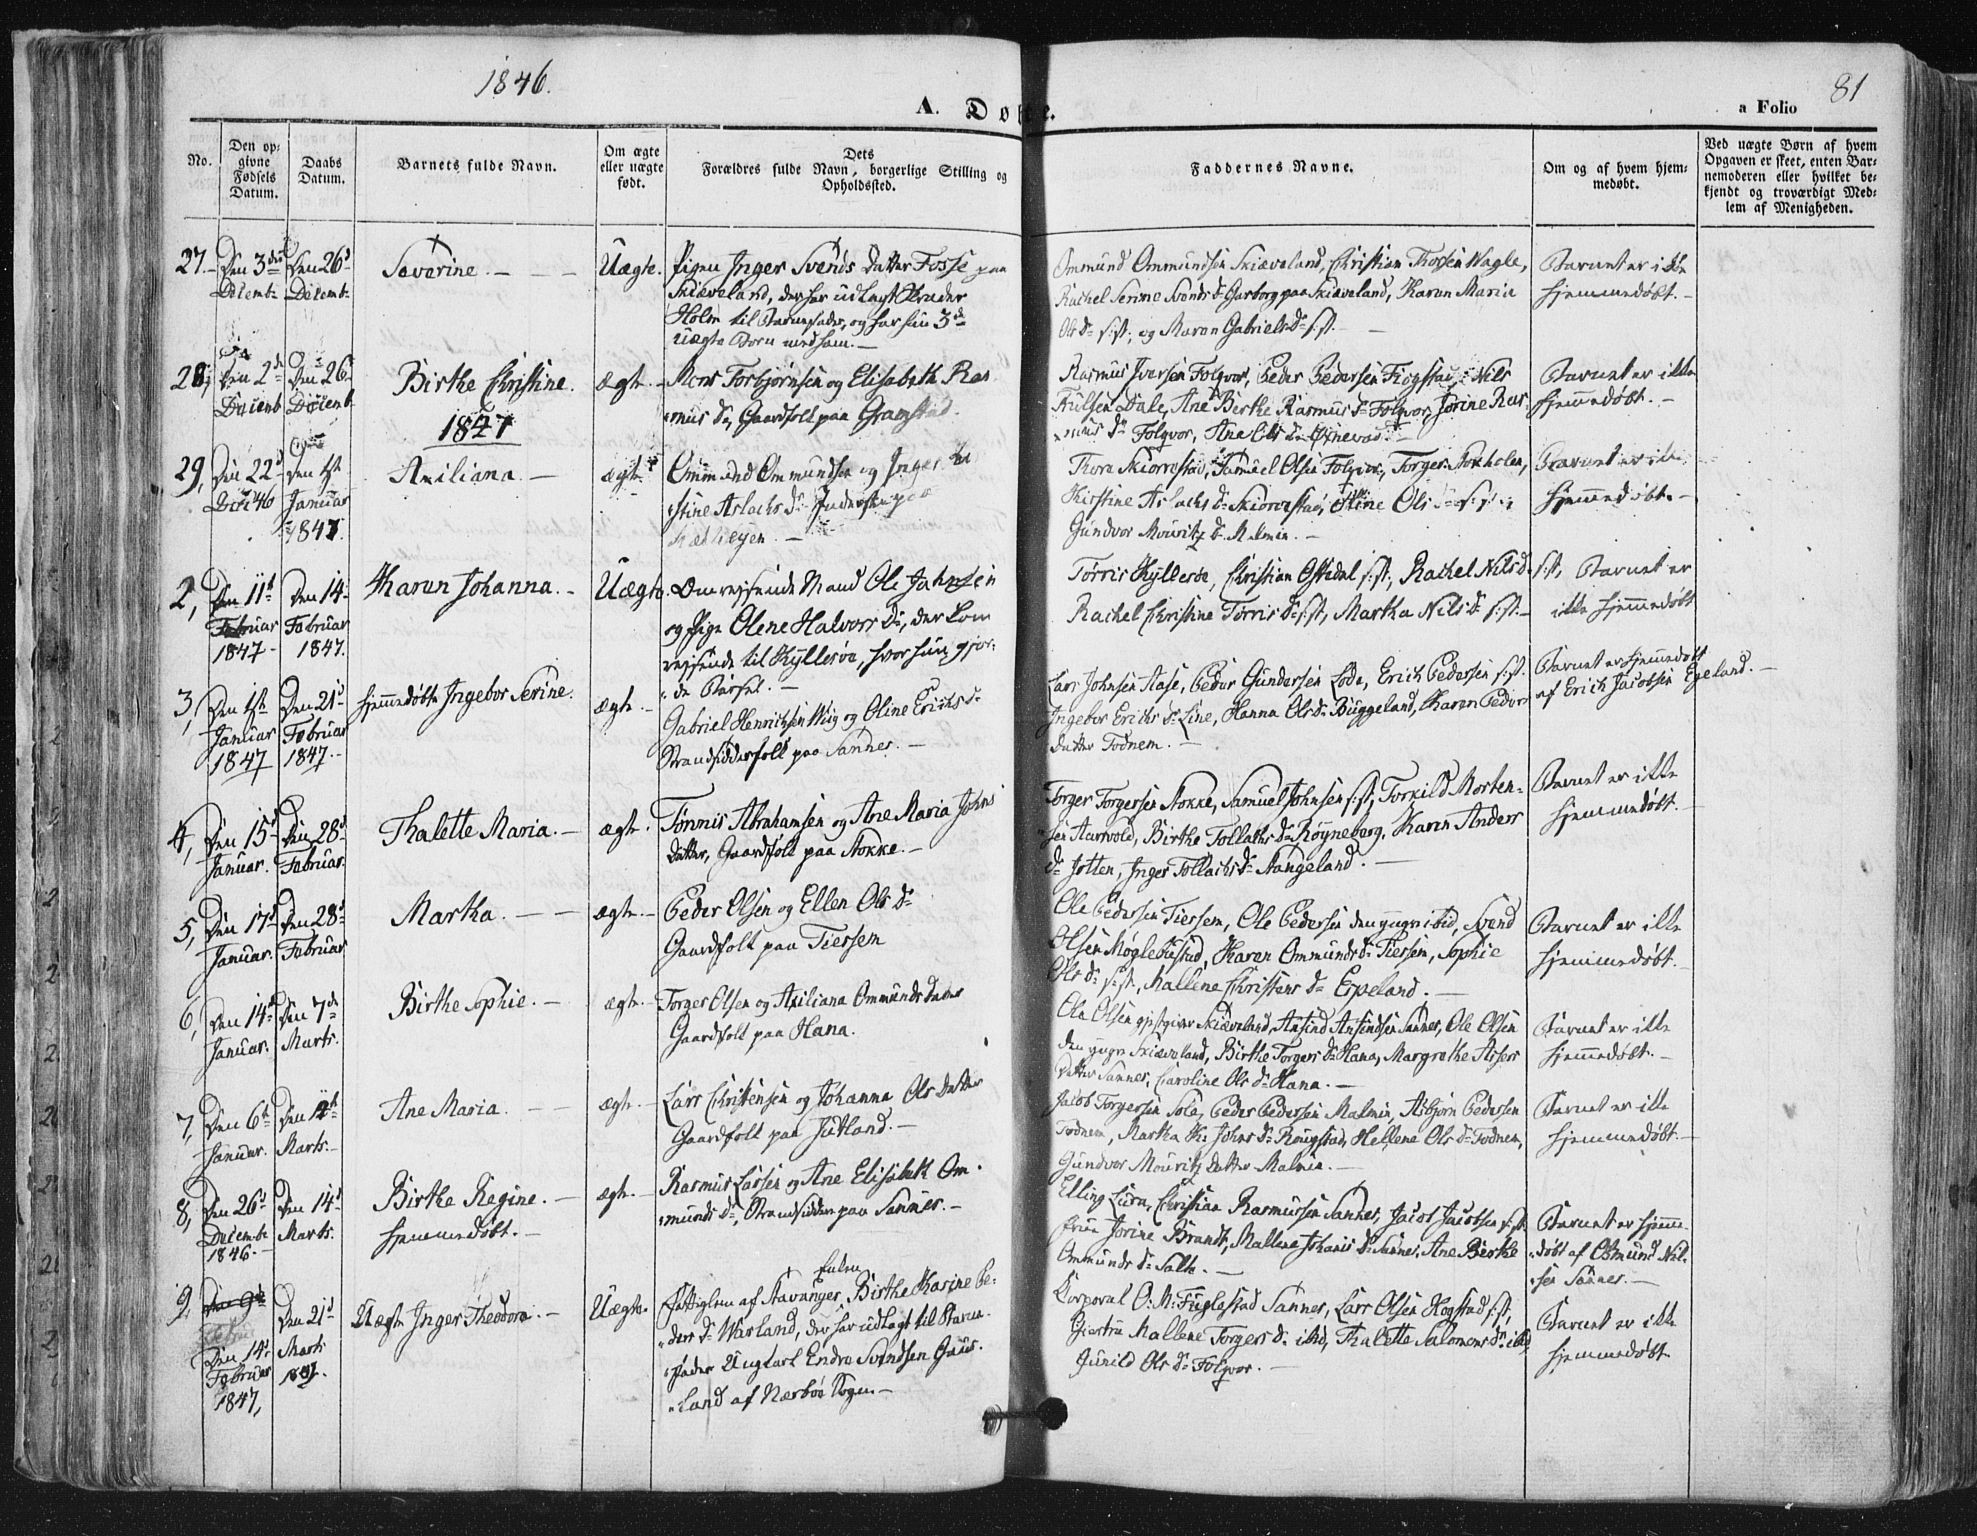 1846.
A. Døbte.
a Folio 81
No.
Den op-
givne
Fødsels
Datum.
Daabs
Datum.
Barnets fulde Navn.
Om ægte
eller uægte
født.
Dets
Forældres fulde Navn, borgerlige Stilling og
Opholdssted.
Faddernes Navne.
Om og af hvem hjem-
medøbt.
Ved uægte Børn af hvem
Opgaven er skeet, enten Bar-
nemoderen eller hvilket be-
kjendt og troværdigt Med-
lem af Menigheden.
27.
Den 3die
Decemb.
Den 26d
Decemb.
Severine.
Uægte.
Pigen Inger Svends Datter Fosse paa
Skiæveland, der har udlagt
Holm til Barnefader, og har hun 3de
uægte Børn med ham.
Ommund Ommundsen Skiæveland, Christian Thorsen Wagle,
Rachel Serine Svends Dr Garborg paa Skiæveland, Karen Maria
Ols Dr s:st; og Maren Gabriels Dr s:st.
Barnet er ikke
hjemmedøbt.
28,
Den 2d
Decemb
Den 26d
Decemb
Birthe Christine.
1847
ægte.
Mons Torbjørnsen og Elisabeth Ras
mus Dr, Gaardfolk paa Gramstad.
Rasmus Iversen Folqvor, Peder Pedersen Fiogstad, Nils
Dale, Ane Birthe Rasmus Dr Folqvor, Jorine Ras
mus Dr Folqvor, Ane Ols Dr Øxnevad
Barnet er ikke
hjemmedøbt.
29,
Den 22d
Dec 46
Den 1st
Januar
1847.
Axiliana.
ægte
Ommund Ommundsen og Inger
stine Aslachs Dr Inderster paa
Thore Skiorestad, Samuel Olsen Folqvor, Torger Stokholen,
Kirstine Aslachs Dr Skiorestad, Stine Ols Dr s:st;
Gundvor Mouritz Dr Malmin.
Barnet er ikke
hjemmedøbt.
2,
Den 11t
Februar
1847
Den 14
Februar
1847.
Karen Johanna.
Uægte.
Omreisende Mand Ole Johnsen
og Pige Olene Halvors Dr, der kom
reisende til Kyllesøe, hvor hun gjor-
de Barsel.
Tørris Kyllesøe, Christian Opstedal s:st, Rachel Nils Dr s:st,
Rachel Christine Tørris Dr s:st, Martha Nils Dr s:st.
Barnet er
ikke hjemmedøbt
3,
Den 1st
Januar
1847
Den 21d
Februar
1847.
hjemmedøbte Ingebor Serine.
ægte.
Gabriel Henrichsen Wiig og Oline Erichs Dr
Strandsidderfolk paa Sannes.
Lars Johnsen Aase, Peder Gundersen Lode, Erich Pedersen s:st.
Ingebor Erichs Dr Line, Hanna Ols Dr Buggeland, Karen Peders
Datter Todnem.
Barnet er hjemmedøbt
af Erich Jacobsen Egeland.
4,
Den 15d
Januar.
Den 28d
Februar.
Thalette Maria.
ægte.
Tønnis Abrahamsen og Ane Maria Johns
Datter, Gaardfolk paa Stokke.
Torger Torgersen Stokke, Samuel Johnsen s:st, Torkild Morten-
sen Aurvold, Birthe Tollachs Dr Røyneberg, Karen Anders
Dr Jotten, Inger Tollachs Dr Stangeland.
Barnet er ikke
hjemmedøbt.
5,
Den 17d
Januar.
Den 28d
Februar
Martha.
ægte.
Peder Olsen og Ellen Ols Dr
Gaardfolk paa Tiessem
Ole Pedersen Tiessem, Ole Pedersen den yngre ibid, Svend
Olsen Møglebustad, Karen Ommunds Dr Tiessem, Sophie
Ols Dr s:st, Mallene Christens Dr Espeland.
Barnet er ikke
hjemmedøbt.
6,
Den 14d
Januar.
Den 7de
Marts.
Birthe Sophie.
ægte.
Torger Olsen og Axiliana Ommunds Datter
Gaardfolk paa Hana.
Ole Olsen Skiæveland, Ansind Ansindsen Sannes, Ole Olsen
den yngre Skiæveland, Birthe Torgers Dr Hana, Margrethe Assers
Datter Sannes, Caroline Ols Dr Hana.
Barnet er ikke
hjemmedøbt.
7,
Den 6t
Januar.
Den
Marts.
Ane Maria.
ægte.
Lars Christensen og Johanna Ols Datter
Gaardfolk paa Jutland.
Jacob Torgersen Sole, Peder Pedersen Malmin, Asbjørn Pedersen
Todnem, Martha K. Johns Dr Rougstad, Hellene Ols Dr Todnem,
Gundvor Mouritz Datter Malmin.
Barnet er ikke
hjemmedøbt.
8,
Den 26d
Decemb.
1846.
Den 14d
Marts.
Birthe Regine.
hjemmedøbt.
ægte.
Rasmus Larsen og Ane Elisabeth Om-
munds Dr, Strandsidder paa Sannes.
Elling Lura, Christian Rasmussen Sannes, Jacob Jacobsen s:st
Frue Jorine Brandt, Mallene Johanis Dr Sannes, Ane Birthe
Ommunds Dr Salte.
Barnet er hjemme-
døbt af Osmund Nil-
sen Sannes.
9,
Den 14d
Februar
1847,
Den 21d
Marts
1847.
Uægte Inger Theodora.
Uægte.
Enken
Fattiglem af Stavanger, Birthe Karine Pe-
ders Dr Warland, der har udlagt til Barne-
fader Ungkarl Endre Svendsen Gaus-
land af Nærbøe Sogn.
Corporal O: M: Fuglestad Sannes, Lars Olsen Hogstad s:st,
Giertrue Mallene Torgers Dr ibid, Thalette Salomons Dr ibid,
Gunild Ols Dr Folqvor.
Barnet er ikke
hjemmedøbt